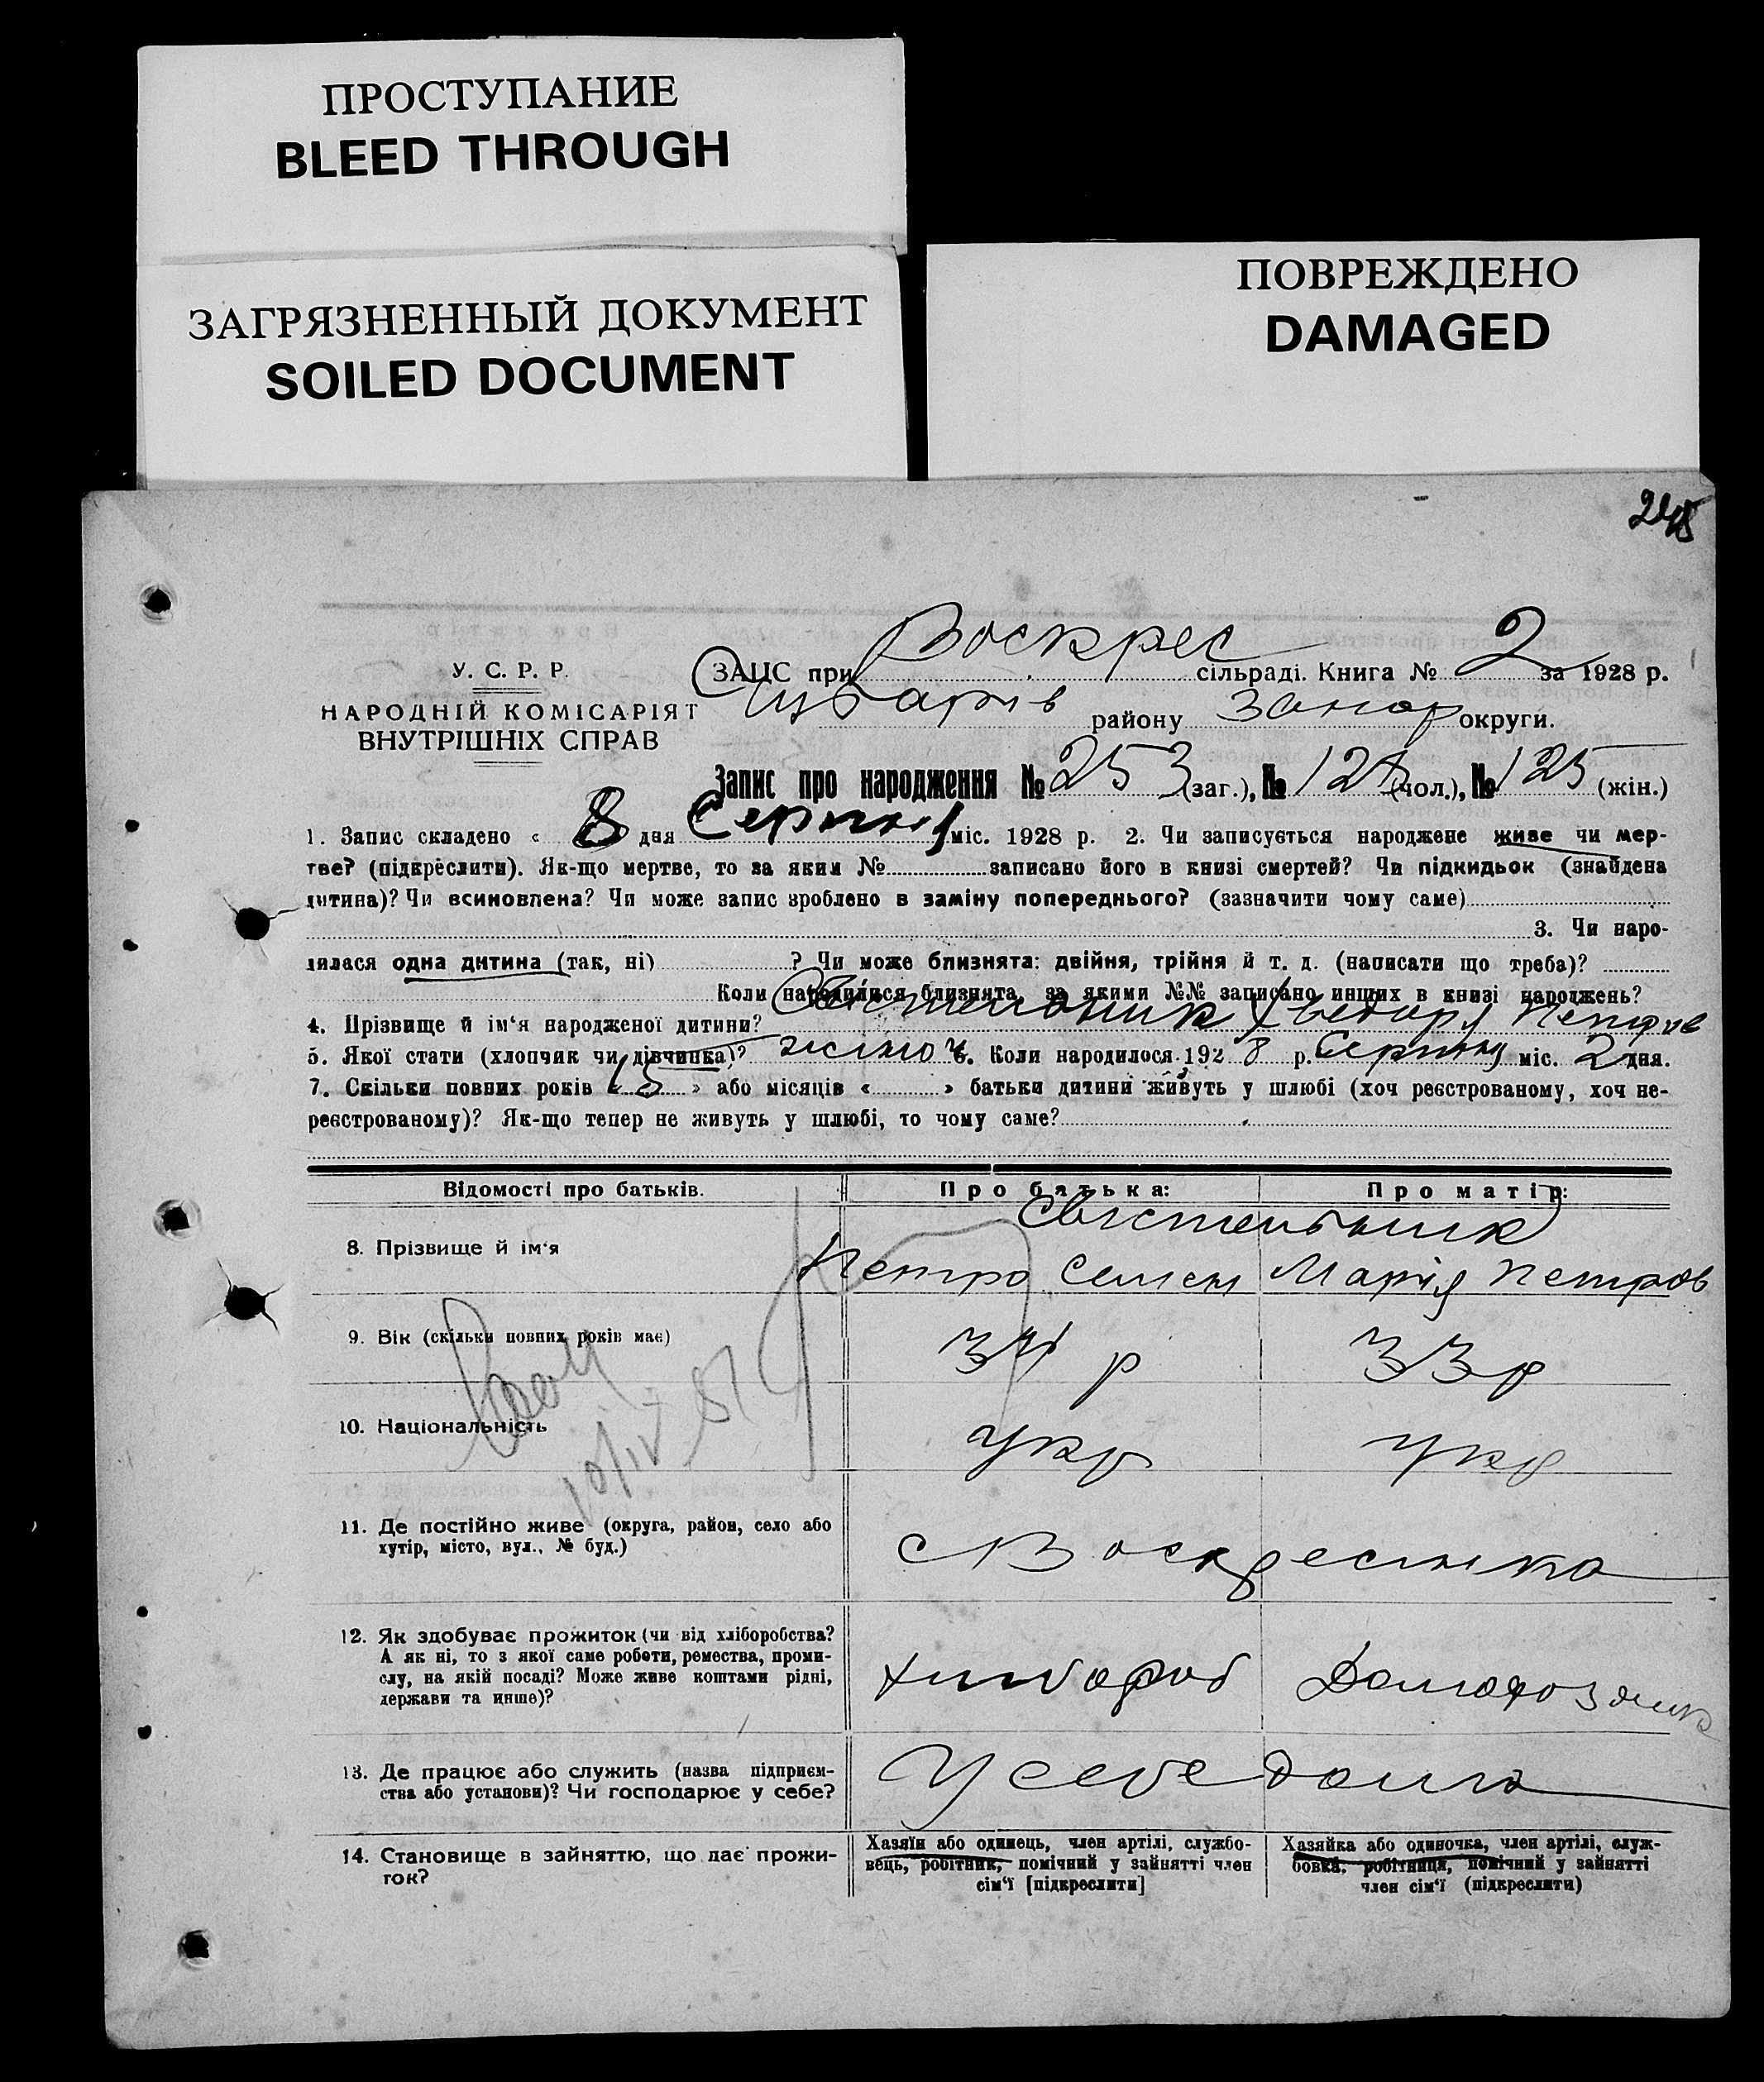 ПРОСТУПАНИЕ
BLEED THROUGH
ЗАГРЯЗНЕННЫЙ ДОКУМЕНТ
SOILED DOCUMENT
ПОВРЕЖДЕНО
DAMAGED
У. С. Р. Р.
НАРОДНІЙ КОМІСАРІЯТ
ВНУТРІШНІХ СПРАВ
ЗАЦС при Воскрес сільраді. Книга № 2 за 1928 р.
району Запор округи.
Запис про народження № 253 (заг.), № (чол.), № 125 (жін.)
1. Запис складено « 8 дня Серпня міс. 1928 р. 2. Чи записується народжене живе чи мер-
тве? (підкреслити). Як-що мертве, то за яким № записано його в книзі смертей? Чи підкидьок (знайдена
дитина)? Чи всиновлена? Чи може запис зроблено в заміну попереднього? (зазначити чому саме)
3. Чи наро-
дилася одна дитина (так, ні) ? Чи може близнята: двійня, трійня й т. д. (написати що треба)?
Коли народилися близнята, за якими №№ записано инших в книзі народжень?
4. Прізвище й ім'я народженої дитини?
5. Якої стати (хлопчик чи дівчинка)? жіноч 6. Коли народилося 1928 р. Серпня міс. 2 дня.
7. Скільки повних років « » або місяців « » батьки дитини живуть у шлюбі (хоч реєстрованому, хоч не-
реєстрованому)? Як-що тепер не живуть у шлюбі, то чому саме?
Відомості про батьків. Про батька: Про матір:
8. Прізвище й ім'я
Петро Семен Марія Петров
9. Вік (скільки повних років має) 34 р 33 р
10. Національність Укр Укр
11. Де постійно живе (округа, район, село або
хутір, місто, вул., № буд.) с Воскресинка
12. Як здобуває прожиток (чи від хліборобства?
А як ні, то з якої саме роботи, ремества, проми-
слу, на якій посаді? Може живе коштами рідні,
держави та инше)?
Хлібороб
13. Де працює або служить (назва підприєм-
ства або установи)? Чи господарює у себе? У себе дома
14. Становище в зайняттю, що дає прожи-
ток?
Хазяїн або одинець, член артілі, службо-
вець, робітник, помічний у зайнятті член
сім'ї [підкреслити]
Хазяйка або одиночка, член артілі, служ-
бовка, робітниця, помічний у зайнятті
член сім'ї (підкреслити)